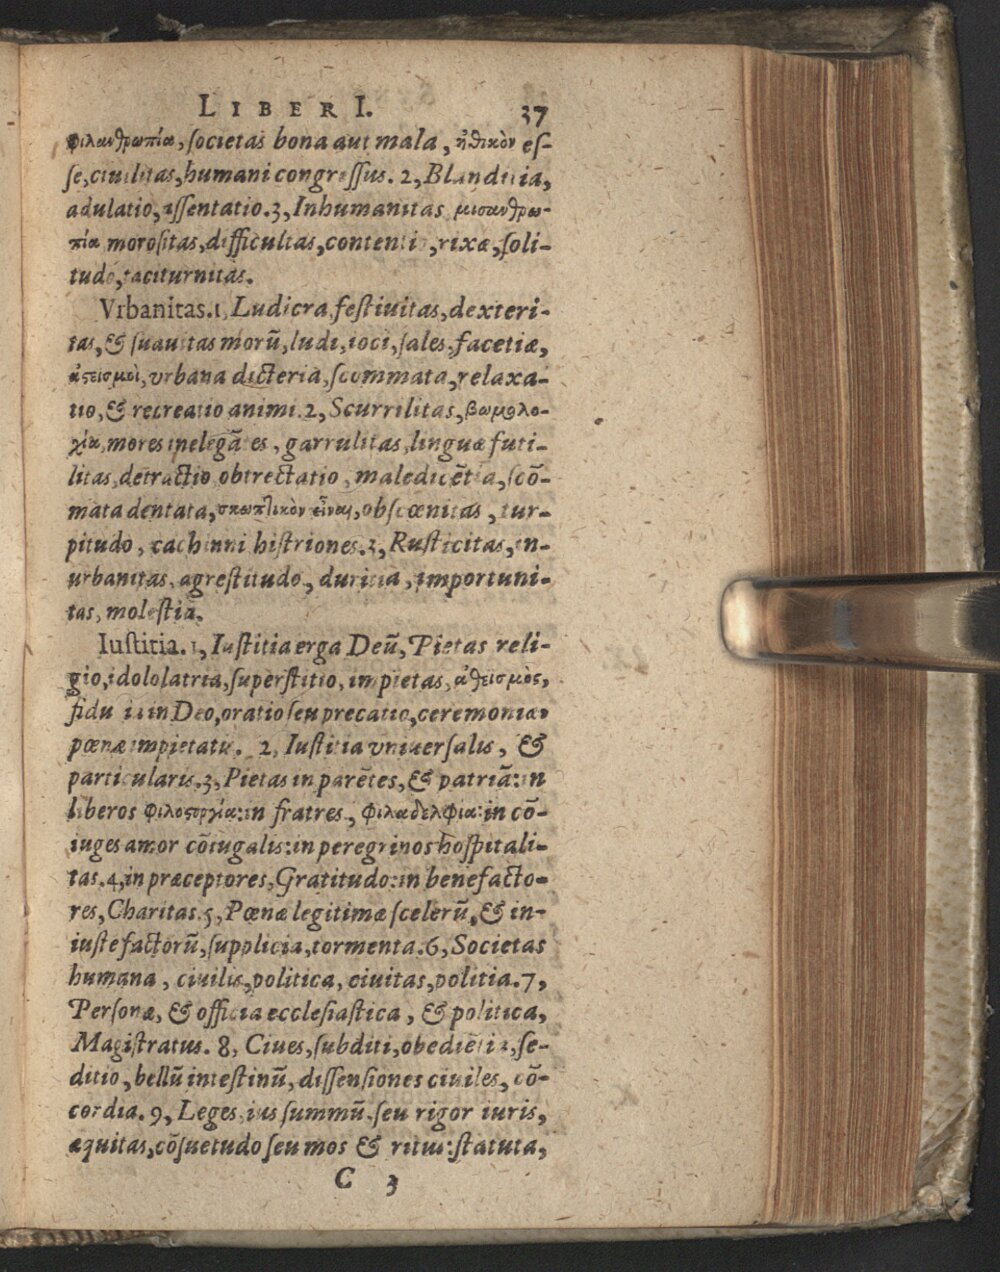 LIBER I. 37
φιλανθρωπία, ſocietas bona aut mala, ἠθικὸν eſ-
ſe, ciuilitas, humani congreſſus. 2, Blanditia,
adulatio, aſſentatio. 3, Inhumanitas μισανθρω-
πία moroſitas, difficultas, contentio, rixæ, ſoli-
tudo, taciturnitas.
Vrbanitas. 1, Ludicra, feſtiuitas, dexteri-
tas, & ſuauitas morũ, ludi, ioci, ſales, facetiæ,
ἀςεισμοὶ, vrbana dicteria, ſcommata, relaxa-
tio, & recreatio animi. 2, Scurrilitas, βωμολο-
χία, mores inelegãtes, garrulitas, linguæ futi-
litas, detractio obtrectatio, maledicẽtia, ſcõ-
mata dentata, σκωπτικὸν εἶναι, obſcœnitas, tur-
pitudo, cachinni hiſtriones. 3, Ruſticitas, in-
urbanitas, agreſtitudo, duricia, importuni-
tas, moleſtia.
Iuſtitia. 1, Iuſtitia erga Deũ, Pietas reli-
gio, idololatria, ſuperſtitio, impietas, ἀθεισμὸς,
fiducia in Deo, oratio ſeu precatio, ceremoniæ,
pœnæ impietatis. 2, Iuſtitia vniuerſalis, &
particularis. 3, Pietas in parẽtes, & patriã: in
liberos φιλοςοργία: in fratres, φιλαδελφία: in cõ-
iuges amor cõiugalis: in peregrinos hoſpitali-
tas. 4, in præceptores, Gratitudo: in benefacto-
res, Charitas. 5, Pœnæ legitimæ ſcelerũ, & in-
iuſte factorũ, ſupplicia, tormenta. 6, Societas
humana, ciuilis, politica, ciuitas, politia. 7,
Perſonæ, & officia eccleſiaſtica, & politica,
Magiſtratus. 8, Ciues, ſubditi, obediẽtia, ſe-
ditio, bellũ inteſtinũ, diſſenſiones ciuiles, cõ-
cordia. 9, Leges, ius ſummũ ſeu rigor iuris,
æquitas, cõſuetudo ſeu mos & ritus: ſtatuta,
C 3